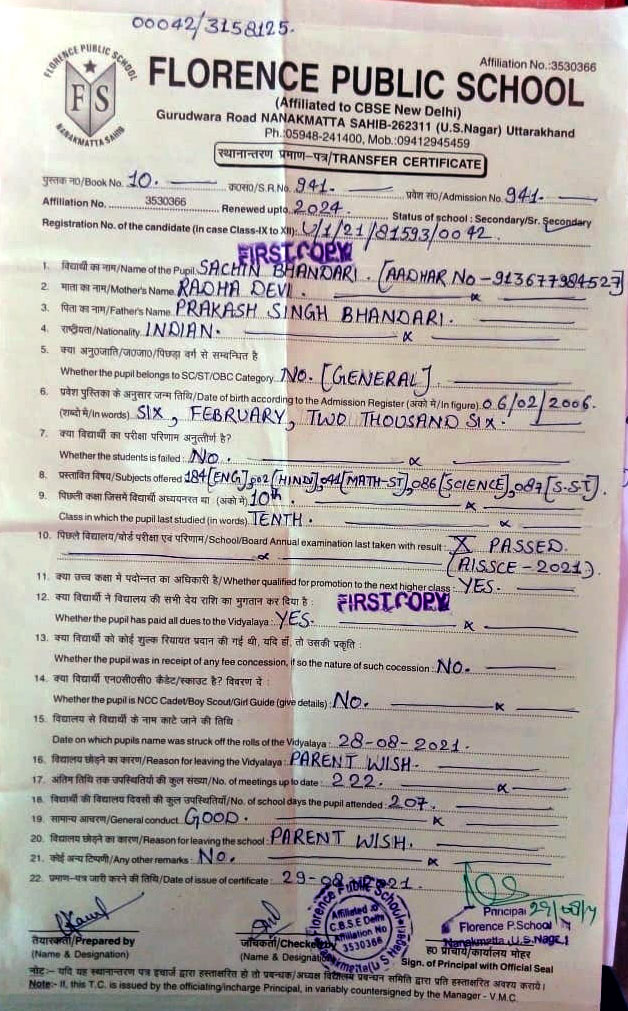 00042/3158125.
Affiliation No.:3530366
FLORENCE PUBLIC SCHOOL
FLORENCE PUBLIC SCHOOL
FS
NANAKMATTA SAHIB
(Affiliated to CBSE New Delhi)
Gurudwara Road NANAKMATTA SAHIB-262311 (U.S.Nagar) Uttarakhand
Ph.:05948-241400, Mob.:09412945459
स्थानान्तरण प्रमाण–पत्र/TRANSFER CERTIFICATE
पुस्तक न0/Book No. 10. क0स0/S.R.No. 941. प्रवेश स0/Admission No. 941.
Affiliation No. 3530366 Renewed upto 2024. Status of school : Secondary/Sr. Secondary
Registration No. of the candidate (in case Class-IX to XII): U/1/21/81593/0042
FIRST COPY
1. विद्यार्थी का नाम/Name of the Pupil SACHIN BHANDARI. [AADHAR NO - 913677984527]
2. माता का नाम/Mother's Name RADHA DEVI.
3. पिता का नाम/Father's Name PRAKASH SINGH BHANDARI.
4. राष्ट्रीयता/Nationality INDIAN.
5. क्या अनु0जाति/ज0जा0/पिछड़ा वर्ग से सम्बन्धित है
Whether the pupil belongs to SC/ST/OBC Category NO. [GENERAL].
6. प्रवेश पुस्तिका के अनुसार जन्म तिथि/Date of birth according to the Admission Register (अको मे/In figure) 06/02/2006.
(शब्दो मे/In words) SIX, FEBRUARY, TWO THOUSAND SIX.
7. क्या विद्यार्थी का परीक्षा परिणाम अनुत्तीर्ण है?
Whether the students is failed: NO.
8. प्रस्तावित विषय/Subjects offered 184[ENG], 002[HINDI], 041[MATH-ST], 086[SCIENCE], 087[S.S.T].
9. पिछली कक्षा जिसमे विद्यार्थी अध्ययनरत था (अको मे) 10th.
Class in which the pupil last studied (in words) TENTH.
10. पिछले विद्यालय/बोर्ड परीक्षा एवं परिणाम/School/Board Annual examination last taken with result: X PASSED.
(AISSCE - 2021).
11. क्या उच्च कक्षा मे पदोन्नत का अधिकारी है/Whether qualified for promotion to the next higher class: YES.
12. क्या विद्यार्थी ने विद्यालय की सभी देय राशि का भुगतान कर दिया है : FIRST COPY
Whether the pupil has paid all dues to the Vidyalaya: YES.
13. क्या विद्यार्थी को कोई शुल्क रियायत प्रदान की गई थी, यदि हॉं, तो उसकी प्रकृति :
Whether the pupil was in receipt of any fee concession, if so the nature of such cocession: NO.
14. क्या विद्यार्थी एन0सी0सी0 कैडेट/स्काउट है? विवरण दे :
Whether the pupil is NCC Cadet/Boy Scout/Girl Guide (give details): NO.
15. विद्यालय से विद्यार्थी के नाम काटे जाने की तिथि :
Date on which pupils name was struck off the rolls of the Vidyalaya: 28-08-2021.
16. विद्यालय छोड़ने का कारण/Reason for leaving the Vidyalaya: PARENT WISH.
17. अंतिम तिथि तक उपस्थितियों की कुल संख्या/No. of meetings up to date: 222.
18. विद्यार्थी की विद्यालय दिवसों की कुल उपस्थितियॉं/No. of school days the pupil attended: 207.
19. सामान्य आचरण/General conduct GOOD.
20. विद्यालय छोड़ने का कारण/Reason for leaving the school PARENT WISH.
21. कोई अन्य टिप्पणी/Any other remarks: NO.
22. प्रमाण–पत्र जारी करने की तिथि/Date of issue of certificate: 29-08-2021.
Florence Public School
Affiliated to
C.B.S.E Delhi
Affiliation No
3530366
Nanakmatta (U.S.Nagar)
Principal 29/08/21
Florence P.School
Nanakmatta, U.S.Nagar
तैयारकर्ता/Prepared by जांचकर्ता/Checked by ह0 प्राचार्य/कार्यालय मोहर
(Name & Designation) (Name & Designation) Sign. of Principal with Official Seal
नोट:– यदि यह स्थानान्तरण पत्र इंचार्ज द्वारा हस्ताक्षरित हो तो प्रबन्धक/अध्यक्ष विद्यालय प्रबन्धन समिति द्वारा प्रति हस्ताक्षरित अवश्य करायें।
Note:- If, this T.C. is issued by the officiating/incharge Principal, in variably countersigned by the Manager - V.M.C.